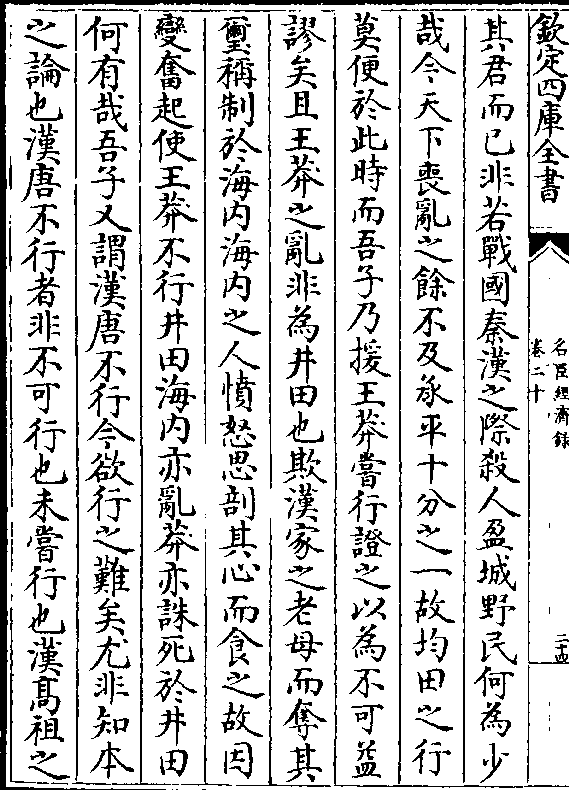 欽定四庫全書
名臣經濟錄
卷二十
二十四
其君而已非若戰國秦漢之際殺人盈城野民何為少
哉今天下喪亂之餘不及承平十分之一故均田之行
莫便於此時而吾子乃援王莽嘗行證之以為不可益
謬矣且王莽之亂非為井田也欺漢家之老母而奪其
璽稱制於海内海内之人憤怒思剖其心而食之故因
變奮起使王莽不行井田海内亦亂莽亦誅死於井田
何有哉吾子又謂漢唐不行今欲行之難矣尤非知本
之論也漢唐不行者非不可行也未嘗行也漢髙祖之